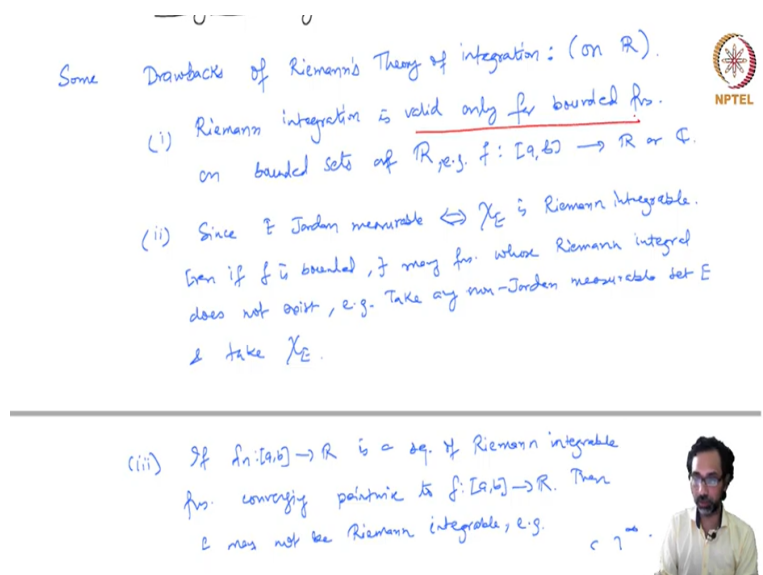 Some Drawbacks of Riemann's Theory of integration: (on ℝ).
NPTEL
(i) Riemann integration is valid only for bounded fns.
on bounded sets of ℝ, e.g. f : [a,b] → ℝ or ℂ.
(ii) Since E Jordan measurable ⇔ χ_E is Riemann integrable.
Even if f is bounded, ∃ many fns. whose Riemann integral
does not exist, e.g. Take any non-Jordan measurable set E
& take χ_E.
(iii) If fn:[a,b] → ℝ is a seq. of Riemann integrable
fns. converging pointwise to f:[a,b] → ℝ. Then
f may not be Riemann integrable, e.g.